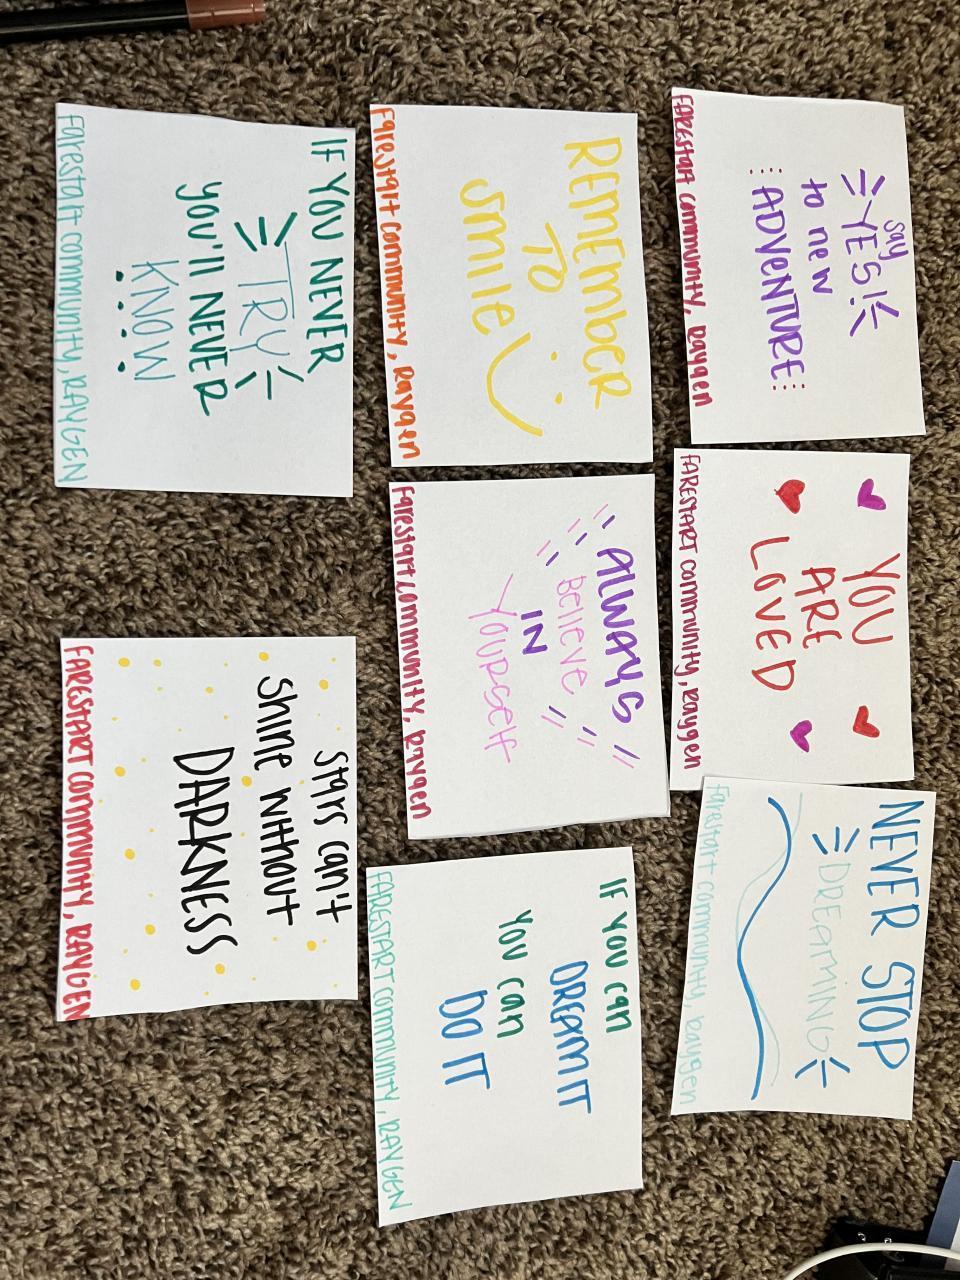 say
YES!
to new
ADVENTURE
Farestart community, Raygen
YOU
ARE
LOVED
FARESTART community, Raygen
NEVER STOP
DREAMING
Farestart community, Raygen
REMEMbER
TO
smile
Farestart community, Raygen
ALWAYS
BElIEVE
IN
YOURSElF
Farestart community, Raygen
IF YOU can
DREAM IT
YOU can
DO IT
FARESTART COMMUNITY, RAYGEN
IF YOU NEVER
TRY
you'll NEVER
KNOW
Farestart community, RAYGEN
stars can't
shine without
DARKNESS
FARESTART COMMUNITY, RAYGEN